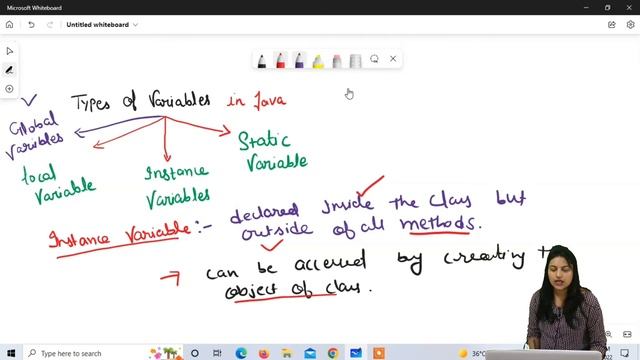 Microsoft Whiteboard
Untitled whiteboard
Types of Variables in Java
Global
Variables
Local
Variable
Instance
Variables
Static
Variable
Instance Variable :- declared inside the class but
outside of all methods.
→ can be accessed by creating
object of class.
Type here to search
36°C